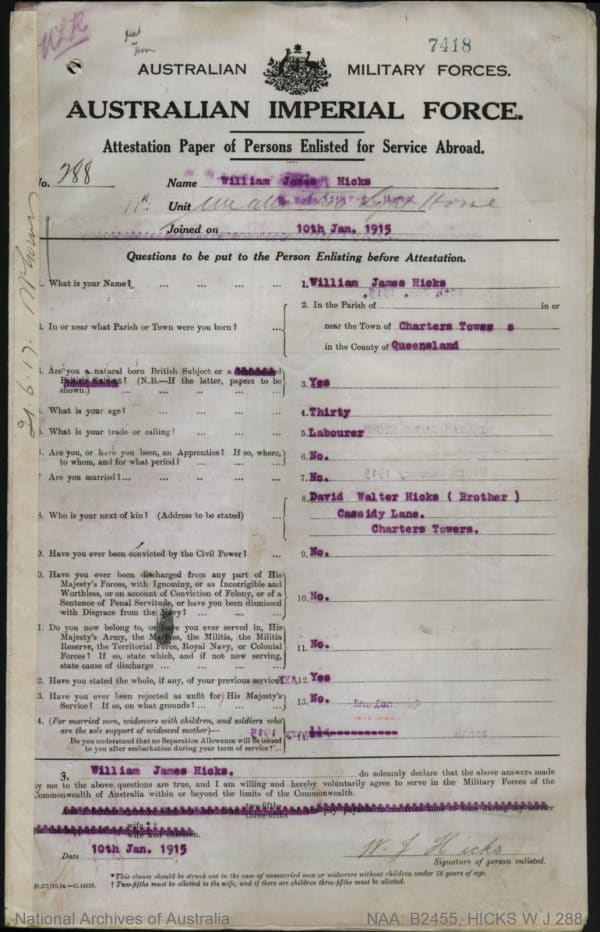 7418
AUSTRALIAN MILITARY FORCES.
AUSTRALIAN IMPERIAL FORCE.
Attestation Paper of Persons Enlisted for Service Abroad.
No. 288
Name William James Hicks
11th Unit Horse
Joined on 10th Jan. 1915
Questions to be put to the Person Enlisting before Attestation.
What is your Name? ... ... ... ... 1. William James Hicks
2. In the Parish of in or
In or near what Parish or Town were you born? ... near the Town of Charters Towes s
in the County of Queensland
Are you a natural born British Subject or a
British Subject? (N.B.—If the latter, papers to be 3. Yes
shown.) ... ... ... ...
What is your age? ... ... ... ... 4. Thirty
What is your trade or calling? ... ... ... 5. Labourer
Are you, or have you been, an Apprentice? If so, where, 6. No.
to whom, and for what period? ... ...
Are you married? ... ... ... ... 7. No.
8. David Walter Hicks ( Brother )
8. Who is your next of kin? (Address to be stated) ... Cassidy Lane.
Charters Towers.
9. Have you ever been convicted by the Civil Power? ... 9. No.
0. Have you ever been discharged from any part of His
Majesty's Forces, with Ignominy, or as Incorrigible and
Worthless, or on account of Conviction of Felony, or of a 10. No.
Sentence of Penal Servitude, or have you been dismissed
with Disgrace from the Navy? ... ...
1. Do you now belong to, or have you ever served in, His
Majesty's Army, the Marines, the Militia, the Militia
Reserve, the Territorial Force, Royal Navy, or Colonial 11. No.
Forces? If so, state which, and if not now serving,
state cause of discharge ... ... ...
2. Have you stated the whole, if any, of your previous service? 12. Yes
3. Have you ever been rejected as unfit for His Majesty's 13. No.
Service? If so, on what grounds? ... ...
4. (For married men, widowers with children, and soldiers who
are the sole support of widowed mother)—
Do you understand that no Separation Allowance will be issued 14.
to you after embarkation during your term of service? ...
I, William James Hicks. do solemnly declare that the above answers made
by me to the above questions are true, and I am willing and hereby voluntarily agree to serve in the Military Forces of the
Commonwealth of Australia within or beyond the limits of the Commonwealth.
two-fifths
three-fifths
wife
wife and children.
Date 10th Jan. 1915 W. J Hicks
Signature of person enlisted.
* This clause should be struck out in the case of unmarried men or widowers without children under 18 years of age.
† Two-fifths must be allotted to the wife, and if there are children three-fifths must be allotted.
21.6.17.
National Archives of Australia NAA: B2455, HICKS W J 288